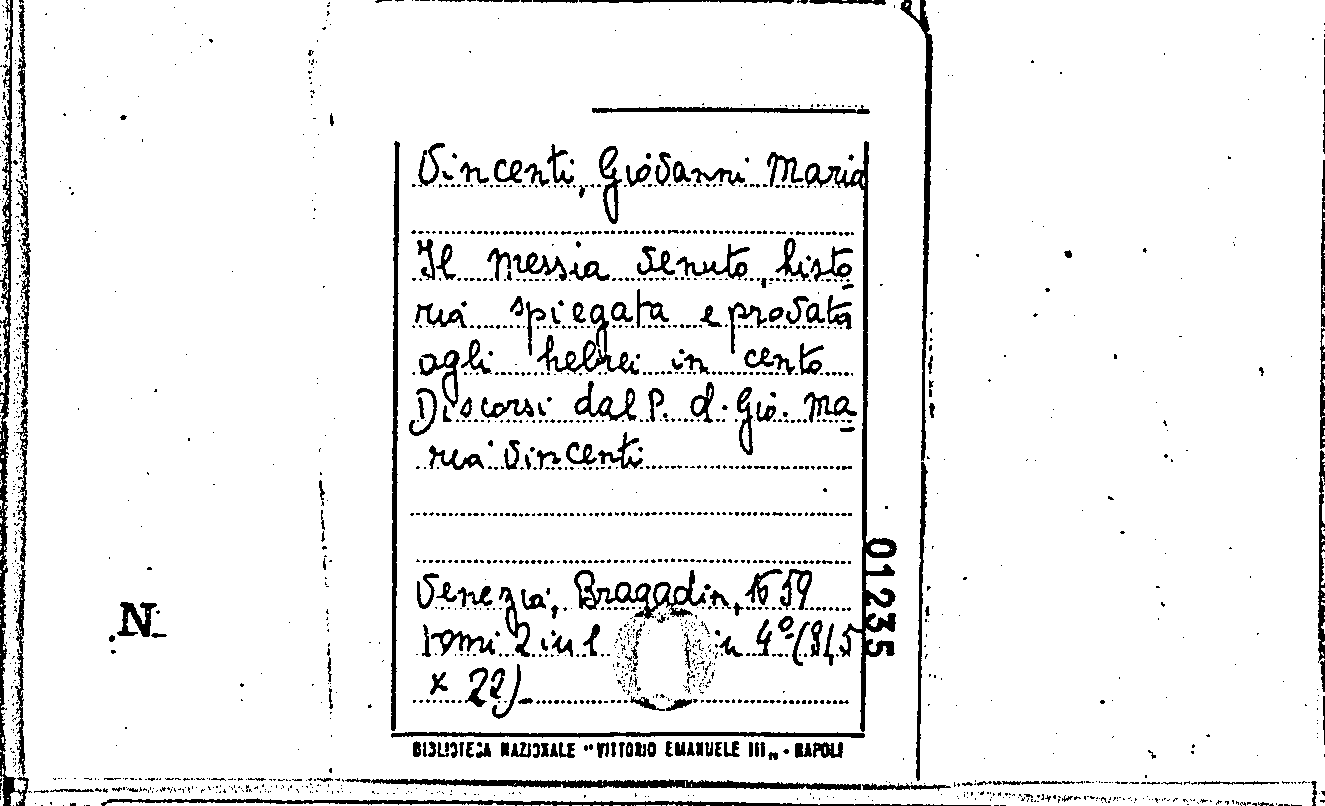 Vincenti, Giovanni Maria
Il messia venuto, histo
ria spiegata e provata
agli hebrei in cento
Discorsi dal P. d. Gio. Ma
ria Vincenti
Venezia, Bragadin, 1659
tomi 2 in 1 in 4º (8/,5
x 22)
BIBLIOTECA NAZIONALE "VITTORIO EMANUELE III" - NAPOLI
01235
N